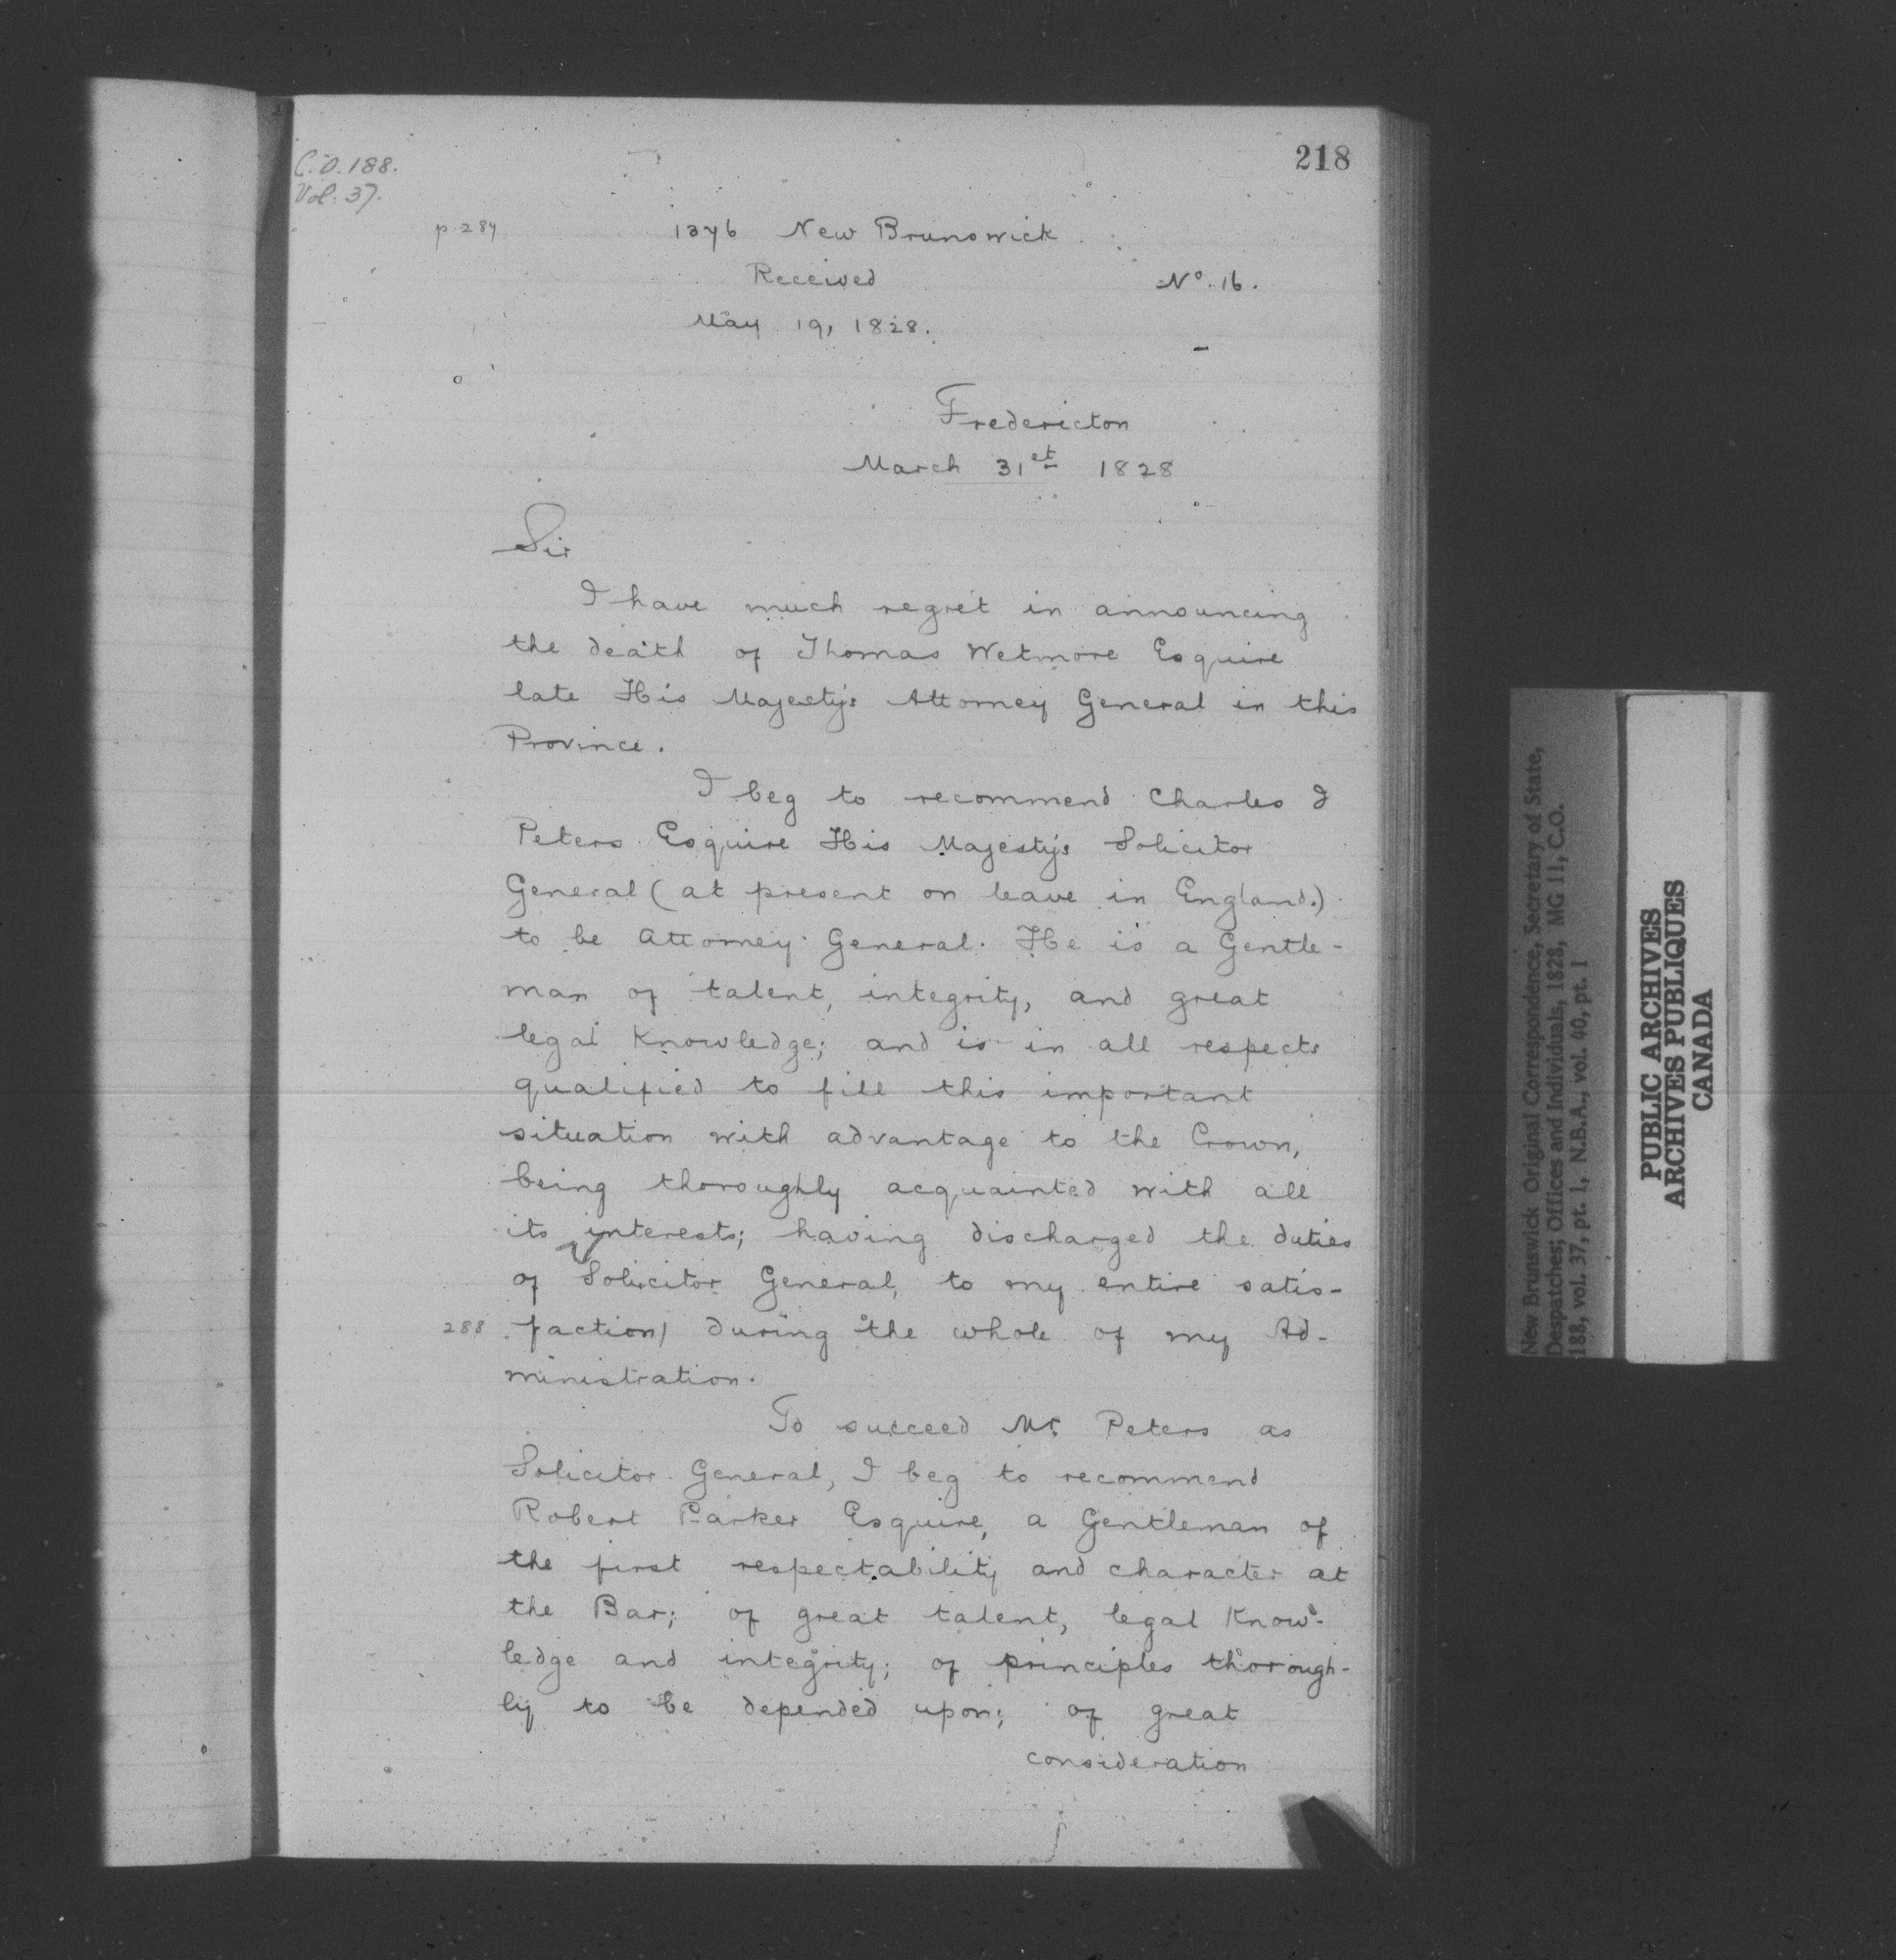 218
C.O. 188.
Vol. 37.
p 287
1376 New Brunswick
Received
No. 16.
May 19, 1828.
Fredericton
March 31st 1828
Sir
I have much regret in announcing
the death of Thomas Wetmore Esquire
late His Majesty's Attorney General in this
Province.
I beg to recommend Charles I
Peters Esquire His Majesty's Solicitor
General (at present on leave in England.)
to be Attorney General. He is a Gentle-
man of talent, integrity, and great
legal Knowledge; and is in all respects
qualified to fill this important
situation with advantage to the Crown,
being thoroughly acquainted with all
its interests; having discharged the duties
of Solicitor General, to my entire satis-
288 faction/ during the whole of my Ad-
ministration.
To succeed Mr Peters as
Solicitor General, I beg to recommend
Robert Parker Esquire, a Gentleman of
the first respectability and character at
the Bar; of great talent, legal Know-
ledge and integrity; of principles thorough-
ly to be depended upon; of great
consideration
New Brunswick Original Correspondence, Secretary of State,
Despatches; Offices and Individuals, 1828, MG 11, C.O.
188, vol. 37, pt. 1, N.B.A., vol. 40, pt. 1
PUBLIC ARCHIVES
ARCHIVES PUBLIQUES
CANADA